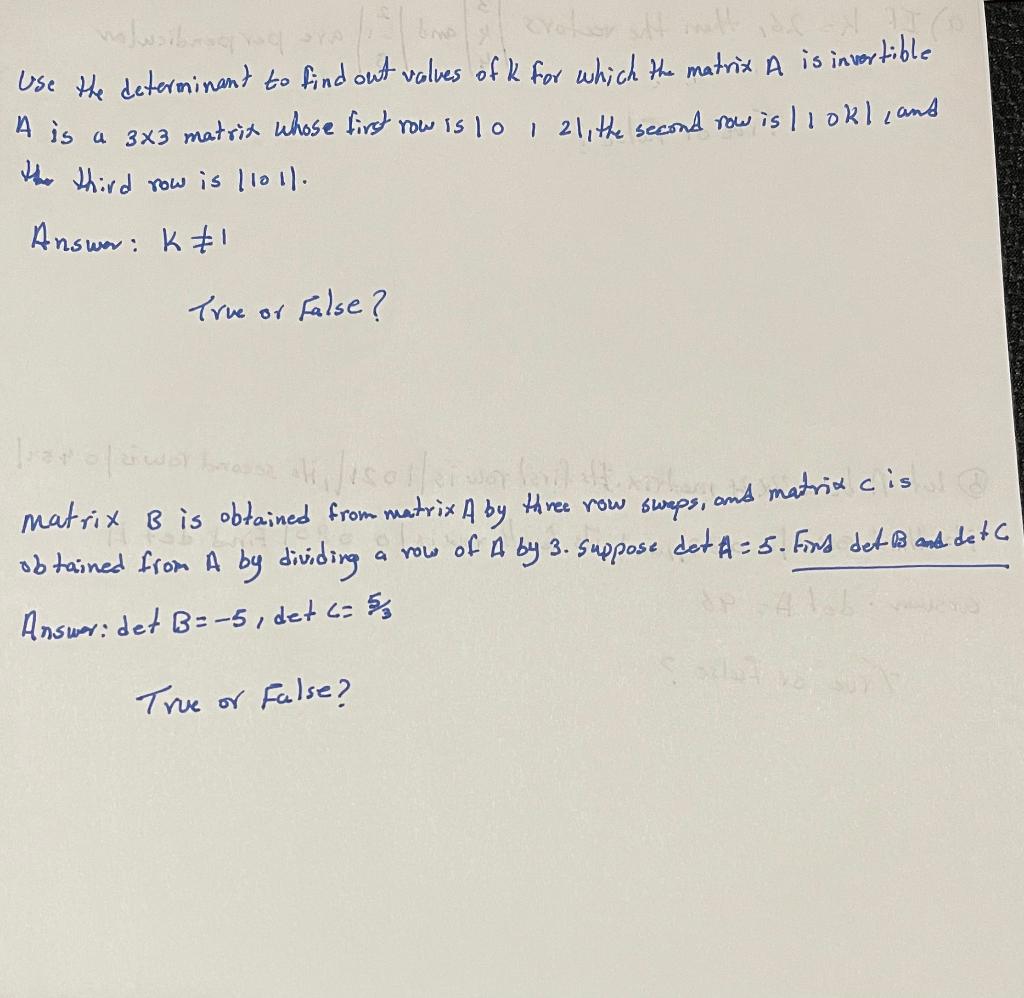 Use the determinant to find out values of k for which the matrix A is invertible
A is a 3x3 matrix whose first row is |0 1 2|, the second row is |1 0 k|, and
the third row is |1 0 1|.
Answer: K ≠ 1
True or False?
matrix B is obtained from matrix A by three row swaps, and matrix c is
obtained from A by dividing a row of A by 3. Suppose det A = 5. Find det B and det C
Answer: det B = -5, det C = 5/3
True or False?